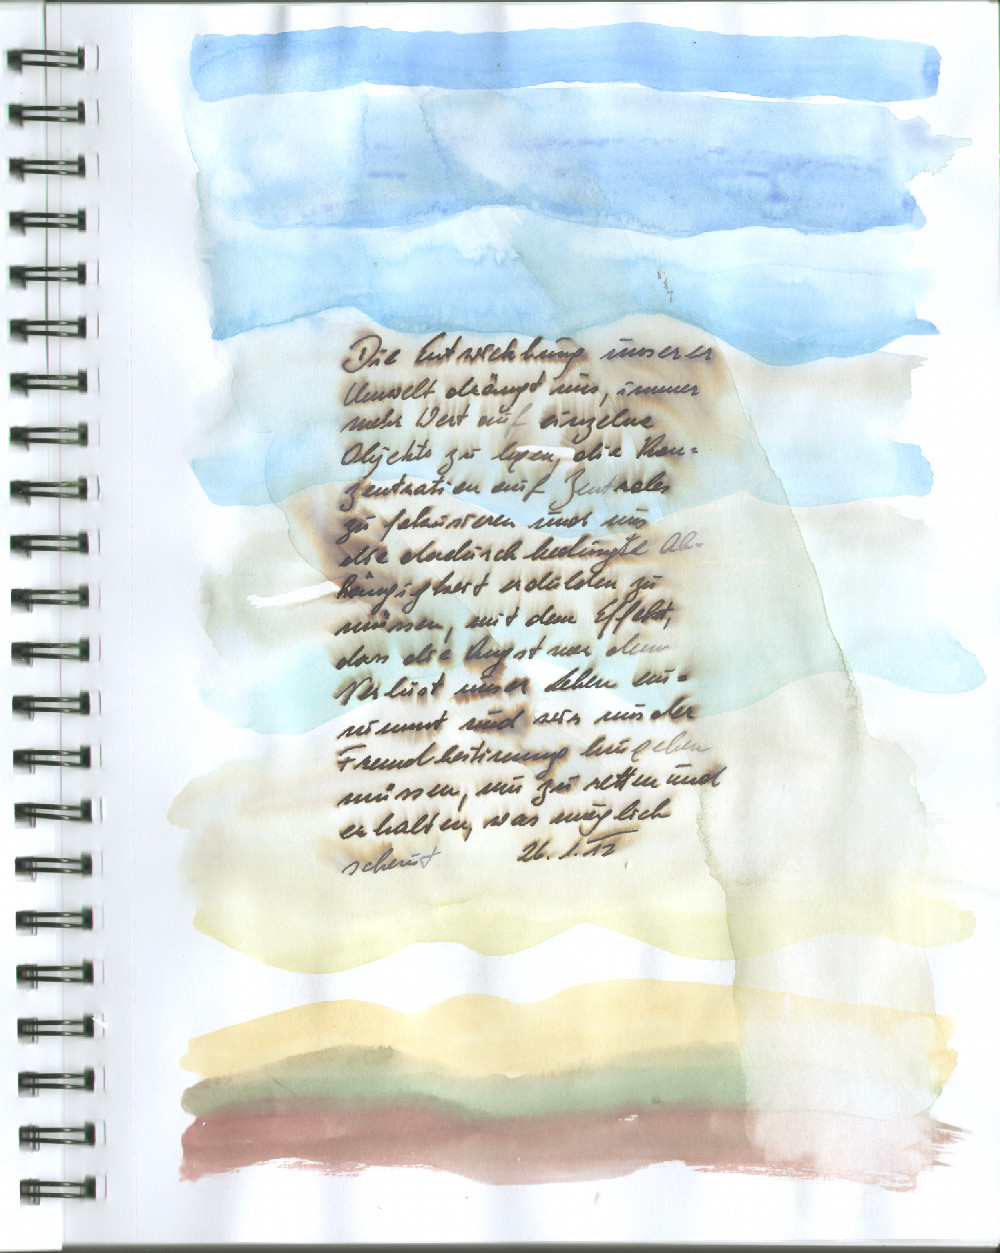 Die Entwicklung unserer
Umwelt drängt uns, immer
mehr Wert auf einzelne
Objekte zu legen, die Kon=
zentration auf Zentrales
zu fokusieren und uns
die dadurch bedingte Ab-
hängigkeit erdulden zu
müssen, mit dem Effekt,
dass die Angst vor dem
Verlust unser Leben ein=
nimmt und wir uns der
Fremdbestimung hingeben
müssen, um zu retten und
erhalten, was möglich
scheint 26.1.12